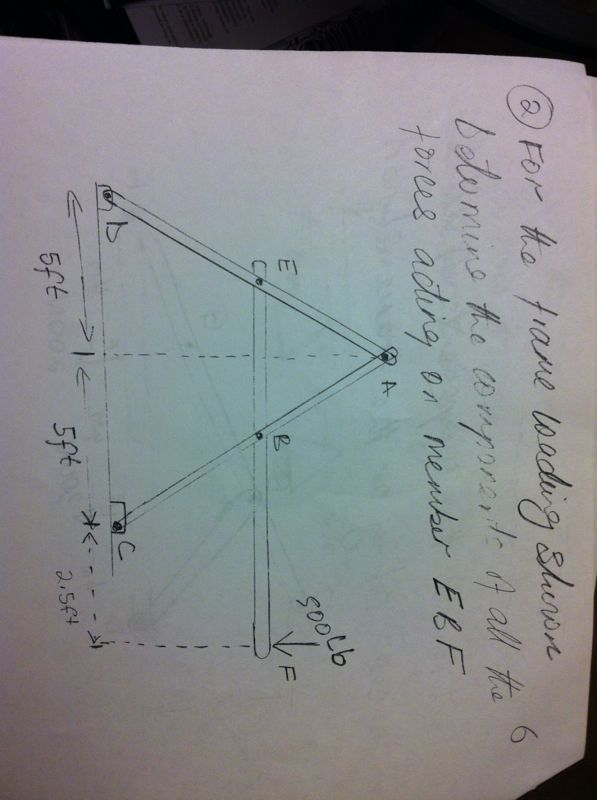 ② For the frame loading shown
Determine the components of all the 6
forces acting on member EBF
A
500 Lb
E
B
F
D
C
5ft
5ft
2.5ft